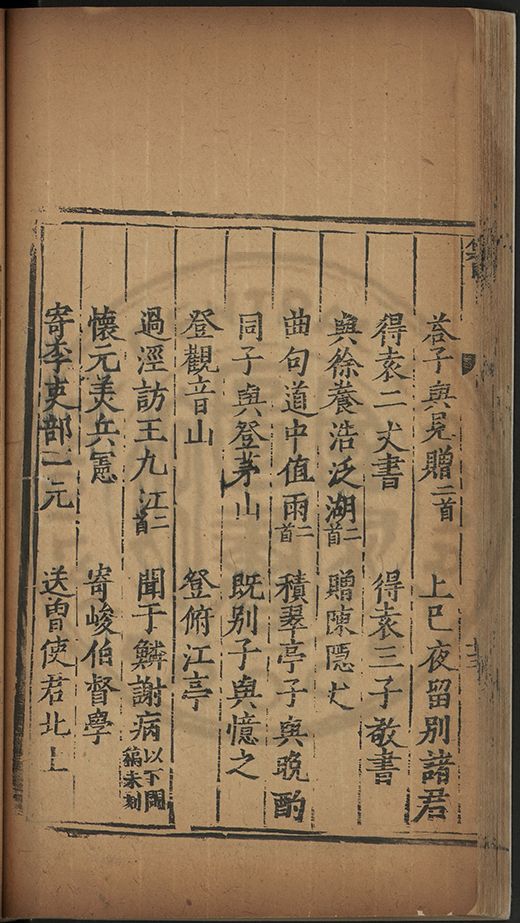 荅子與見贈二首　上巳夜留別諸君
得袁二丈書　得袁三子敬書
與徐養浩泛湖二首　贈陳隱丈
曲句道中值雨二首　積翠亭子與晚酌
同子與登茅山　既別子與憶之
登觀音山　登俯江亭
過涇訪王九江二首　聞于鱗謝病以下閩稿未刻
懷元美兵憲　寄峻伯督學
寄李吏部二元　送曾使君北上